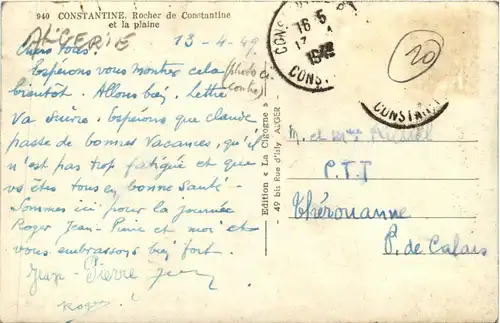 940 CONSTANTINE. Rocher de Constantine
et la plaine
ALGERIE
13-4-49
Chers tous.
Espérons vous montrer cela (photo ci
contre)
bientôt. Allons bien. Lettre
va suivre. Espérons que Claude
passe de bonnes vacances, qu'il
n'est pas trop fatigué et que
vs êtes tous en bonne santé.
Sommes ici pour la journée
Roger Jean-Pierre et moi et
vous embrassons bien fort.
Jean-Pierre
Roger
Edition « La Cigogne »
49 bis Rue d'Isly ALGER
CONSTANTINE
16 5
17
20
M. et Mme
P.T.T
Thérouanne
P. de Calais